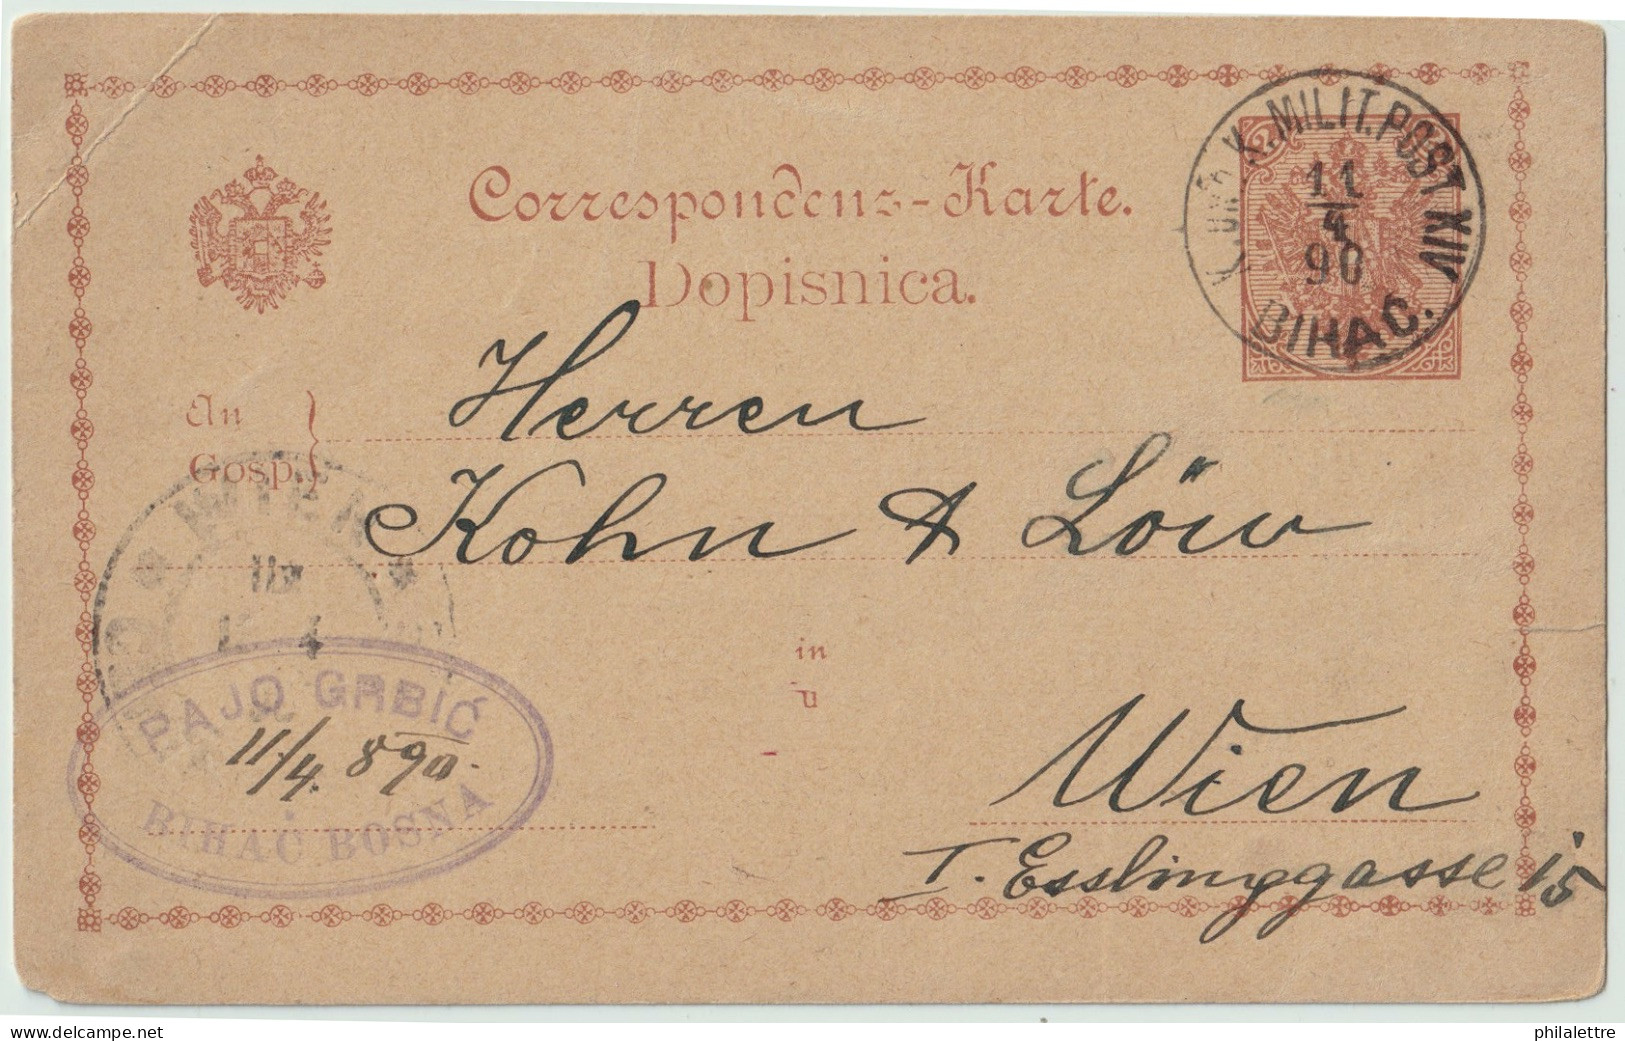 Correspondenz-Karte.
Dopisnica.
2
K. UND K. MILIT. POST XIV
11
4
90
BIHAĆ.
An
Gosp.
Herren
Kohn & Löw
WIEN
4
in
u
Wien
I. Esslinggasse 15
PAJO GRBIĆ
11/4. 890.
BIHAĆ BOSNA
delcampe.net
philalettre